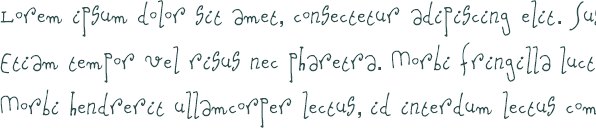 Lorem ipsum dolor sit amet, consectetur adipiscing elit. Sus
Etiam tempor vel risus nec pharetra. Morbi fringilla luct
Morbi hendrerit ullamcorper lectus, id interdum lectus com